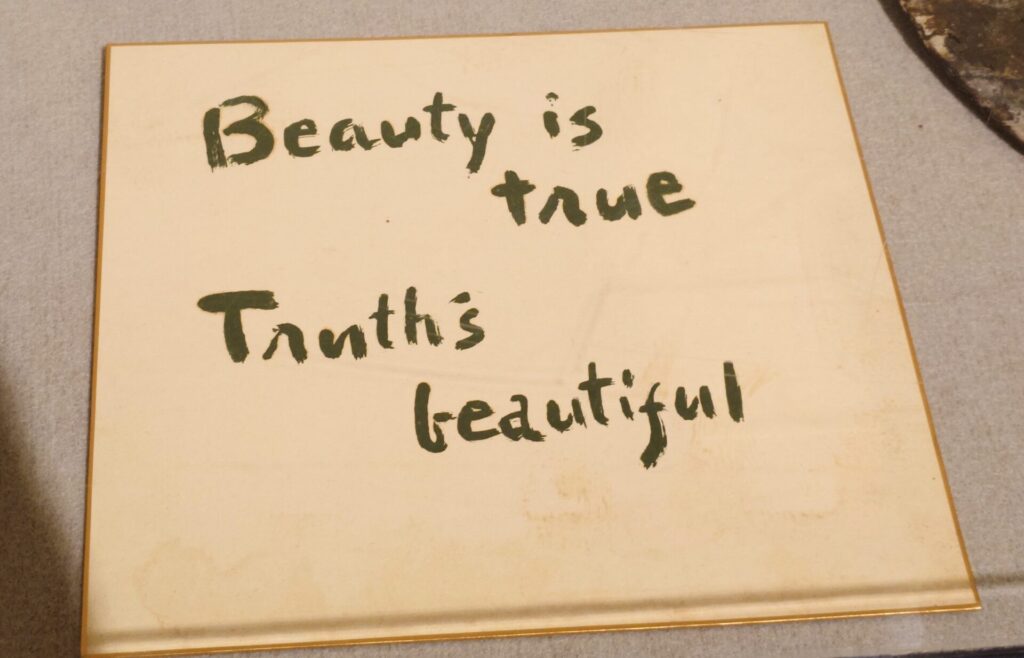 Beauty is
true
Truth's
beautiful